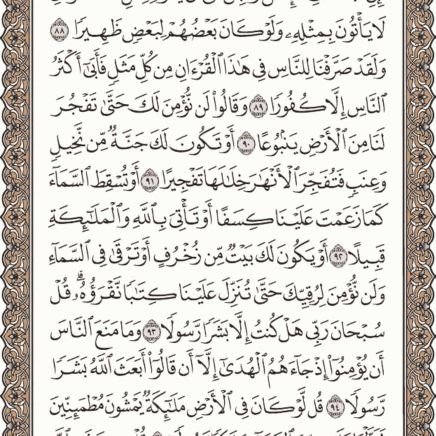 لَا يَأْتُونَ بِمِثْلِهِۦ وَلَوْ كَانَ بَعْضُهُمْ لِبَعْضٍ ظَهِيرًا ٨٨
وَلَقَدْ صَرَّفْنَا لِلنَّاسِ فِي هَٰذَا ٱلْقُرْءَانِ مِن كُلِّ مَثَلٍ فَأَبَىٰٓ أَكْثَرُ
ٱلنَّاسِ إِلَّا كُفُورًا ٨٩ وَقَالُوا۟ لَن نُّؤْمِنَ لَكَ حَتَّىٰ تَفْجُرَ
لَنَا مِنَ ٱلْأَرْضِ يَنۢبُوعًا ٩٠ أَوْ تَكُونَ لَكَ جَنَّةٌ مِّن نَّخِيلٍ
وَعِنَبٍ فَتُفَجِّرَ ٱلْأَنْهَٰرَ خِلَٰلَهَا تَفْجِيرًا ٩١ أَوْ تُسْقِطَ ٱلسَّمَآءَ
كَمَا زَعَمْتَ عَلَيْنَا كِسَفًا أَوْ تَأْتِيَ بِٱللَّهِ وَٱلْمَلَٰٓئِكَةِ
قَبِيلًا ٩٢ أَوْ يَكُونَ لَكَ بَيْتٌ مِّن زُخْرُفٍ أَوْ تَرْقَىٰ فِي ٱلسَّمَآءِ
وَلَن نُّؤْمِنَ لِرُقِيِّكَ حَتَّىٰ تُنَزِّلَ عَلَيْنَا كِتَٰبًا نَّقْرَؤُهُۥ ۗ قُلْ
سُبْحَانَ رَبِّي هَلْ كُنتُ إِلَّا بَشَرًا رَّسُولًا ٩٣ وَمَا مَنَعَ ٱلنَّاسَ
أَن يُؤْمِنُوٓا۟ إِذْ جَآءَهُمُ ٱلْهُدَىٰٓ إِلَّآ أَن قَالُوٓا۟ أَبَعَثَ ٱللَّهُ بَشَرًا
رَّسُولًا ٩٤ قُل لَّوْ كَانَ فِي ٱلْأَرْضِ مَلَٰٓئِكَةٌ يَمْشُونَ مُطْمَئِنِّينَ